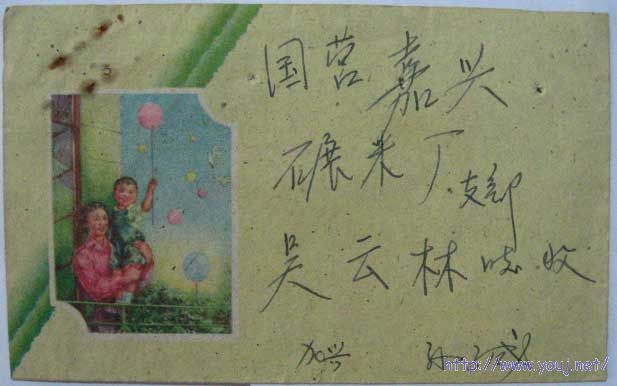 国营嘉兴
碾米厂支部
吴云林 收
加兴
http://www.youj.net/